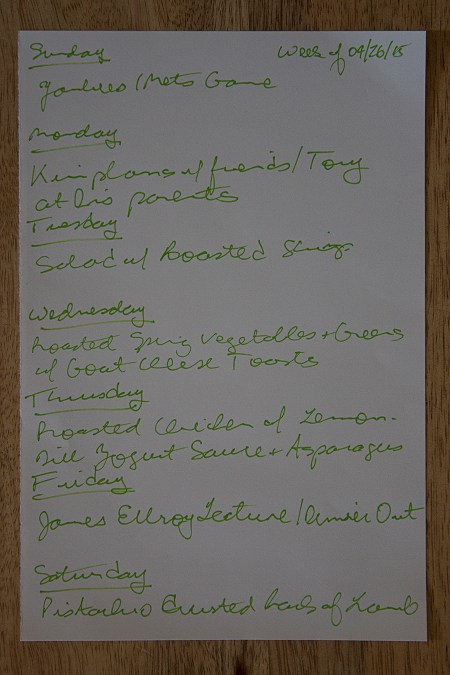 Sunday
Week of 04/26/15
Yankees/Mets Game
Monday
Kim plans w/ friends/Tony
at his parents
Tuesday
Salad w/ Roasted Shrimp
Wednesday
Roasted Spring Vegetables + Greens
w/ Goat Cheese Toasts
Thursday
Roasted Chicken w/ Lemon-
Dill Yogurt Sauce + Asparagus
Friday
James Ellroy Lecture/Dinner Out
Saturday
Pistachio Crusted Rack of Lamb